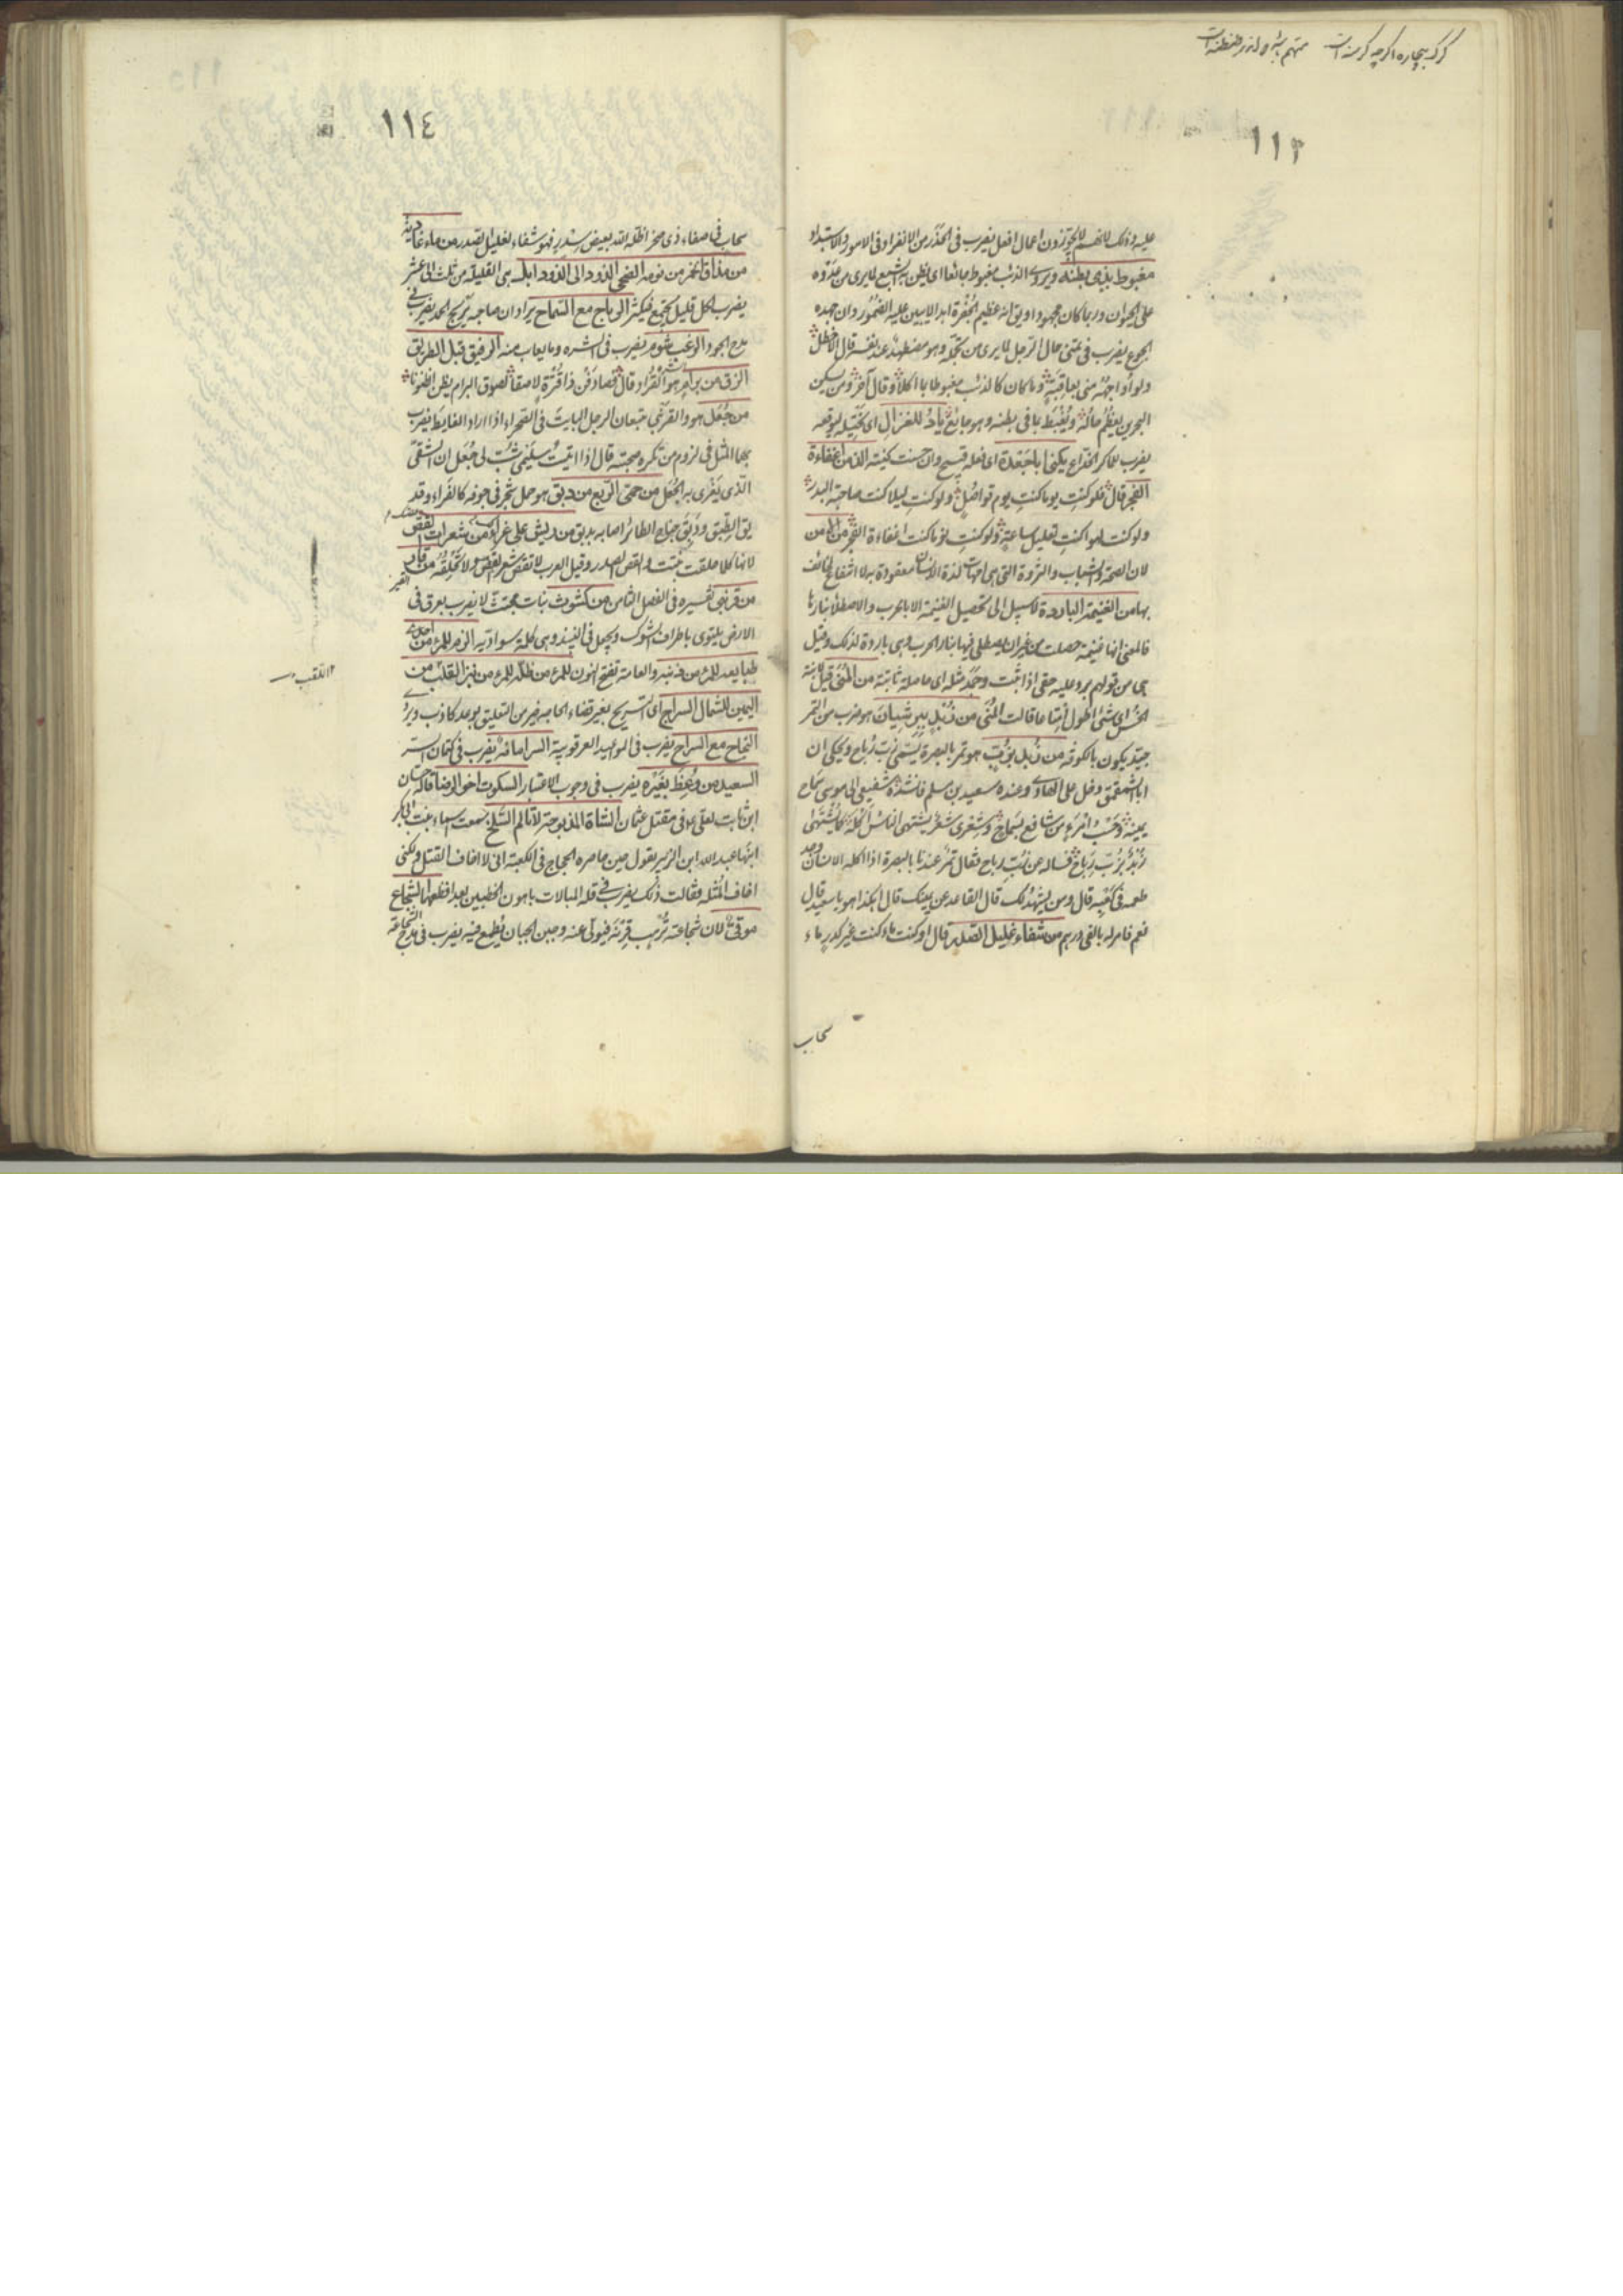 گرگ بیچاره اگرچه گرسنه است متهم
١١٣
عليه وذلك لانهم لا يجوزون اعمال افعل يضرب فى الحذر من الانفراد فى الامور والاستبداد
مغبوط بذى بطنه ويروى الذئب مغبوط بما تعا اى يظن به الشبع لما يرى من عدوه
على الحيوان وربما كان مجهودا ويق انه عظيم الجفرة ابدا لا يبين عليه الضمور وان جهده
الجوع يضرب فى حال الرجل لما يرى من تجمله وهو مضطهد عند نفسه قال الاخطل
وما كان كالذئب مغبوطا بما اكلا وقال آخر ومن يسكن
البحرين يعظم طحاله ويغبط بما فى بطنه وهو جائع يأدو للغزال اى يختله ليوقعه
يضرب للماكر الخداع يكنى ابا جعدة اى فعله قبيح وان حسنت كنيته الذ من اغفاءة
الفجر قال فلو كنت يوما كنت يوم تواصل ولو كنت ليلا كنت صاحبة البدر
ولو كنت لهوا كنت تعليل ساعة ولو كنت نوما كنت اغفاءة الفجر من المن
لان الصحة والشباب والثروة التى هى امهات لذة الانسان معقودة به لا انتفاع لخائف
بها من الغنيمة الباردة لا سبيل الى تحصيل الغنيمة الا بالحرب والاصطلاء بنارها
فالمعنى انها غنيمة حصلت من غير ان يصطلى فيها بنار الحرب وهى باردة لذلك وقيل
هى من قولهم برد عليه حقى اذا ثبت وجمد مثله اى حاصلة ثابتة من المنى قيل لابنة
الخس اى شئ اطول امتاعا قالت المنى من زبد بنرسيان هو ضرب من التمر
جيد يكون بالكوفة من زبد بزب هو تمر بالبصرة يسمى زب رباح ويحكى ان
ابا الشمقمق دخل على الهادى وعنده سعيد بن سلم فانشده شفيعى الى موسى سماح
يمينه وحسب امرء من شافع بسماح وشعرى شعر يشتهى الناس اكله كما يشتهى
زبد بزب رباح فساله عن زب رباح فقال تمر عندنا بالبصرة اذا اكله الانسان وجد
طعمه فى كعبه قال ومن يشهد لك قال القاعد عن يمينك قال اهكذا هو يا سعيد قال
نعم فامر له بالفى درهم من شفاء غليل الصدر قال لو كنت ماء كنت غير كدر ماء
سحاب
١١٤
سحاب فى صفاء ذى صخر اظله الله بعيض سدر فهو شفاء لغليل الصدر من ماء غادية
من مذاق الخمر من نومة الضحى الذود الى الذود ابل هى القليلة من ثلث الى عشر
يضرب لكل قليل يجتمع فيكثر الرباح مع السماح يراد ان صاحبه يربح الحمد يضرب فى
مدح الجود الرغب شوم يضرب فى الشره وما يعاب منه الرفيق قبل الطريق
الزق من برام هو القراد قال فصادفن ذا قترة لاصقا لصوق البرام يظن الظنونا
من جعل هو والقرنبى يتبعان الرجل البايت فى الصحراء اذا اراد الغايط يضرب
بهما المثل فى لزوم من تكره صحبته قال اذا اتيت سليمى شب لى جعل ان الشقى
الذى يغرى به الجعل من حمى الربع من دبق هو حمل شجر فى جوفه كالغراء وقد
يق الطبق ودبق جناح الطائر اصابه بدبق من ريش على غراء من شعرات القص
لانها كلما حلقت نبتت والقص الصدر وقيل العرب لا تقص شعر القص ولا تحلقه من قار
من قرنبى تفسيره فى الفصل الثامن من كشوث نبات مجتث لا يضرب بعرق فى
الارض يلتوى باطراف الشوك ويجعل فى النبيذ وهى كلمة سوادية الزم للمرء من احدى
طبايعه للمرء من ذنبه والعامة تفتح النون للمرء من ظله للمرء من نبز اللقب من
اليمين للشمال السراح اى التسريح بغير قضاء الحاجة خير من التعليق بوعد كاذب ويرو
النجاح مع السراح يضرب فى المواعيد العرقوبية السر امانة يضرب فى كتمان السر
السعيد من وعظ بغيره يضرب فى وجوب الاعتبار السكوت اخو الرضا قاله حسان
ابن ثابت لعلى ع فى مقتل عثمان الشاة المذبوحة لا تالم السلخ سمعت اسماء بنت ابى بكر
ابنها عبد الله ابن الزبير يقول حين حاصره الحجاج فى الكعبة انى لا اخاف القتل ولكنى
اخاف المثلة فقالت ذلك يضرب فى قلة المبالات باهون الخطبين بعد افظعهما الشجاع
موقى لان شجاعته ترهب قرنه فيولى عنه وجبن الجبان يطمع فيه يضرب فى مدح الشجاعة
اللقب